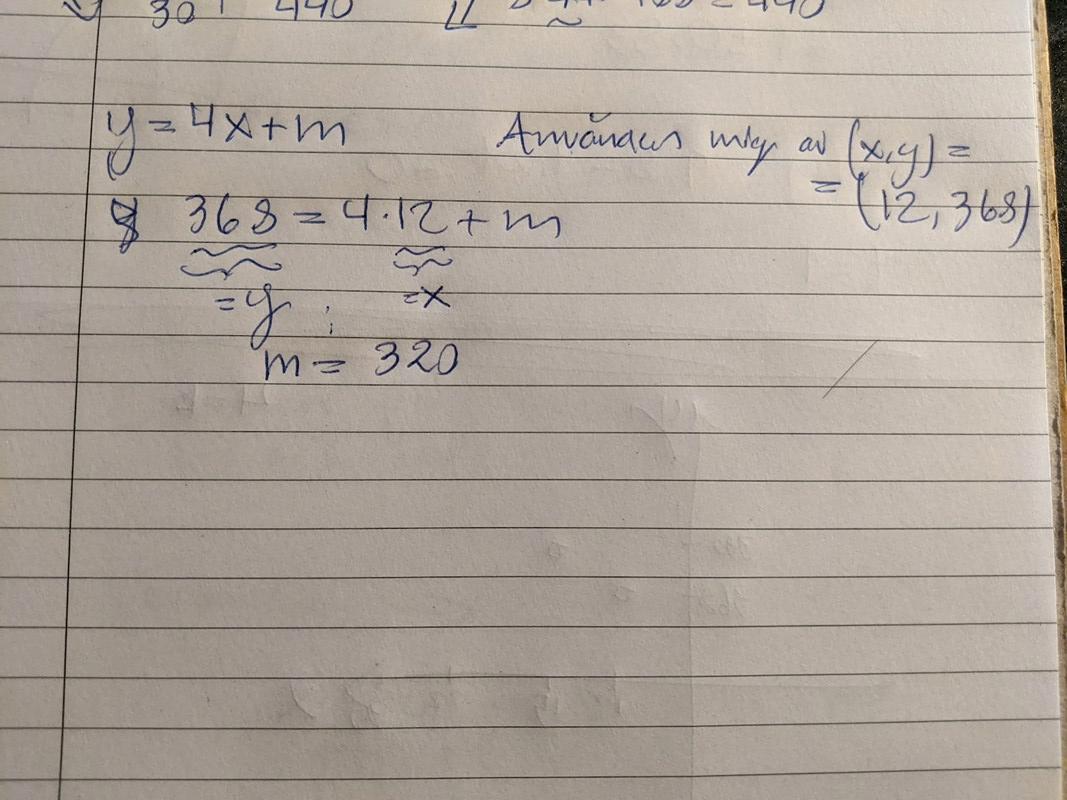 30 440 = 440
y = 4x + m Använder mig av (x,y) =
= (12, 368)
368 = 4·12 + m
= y = x
m = 320